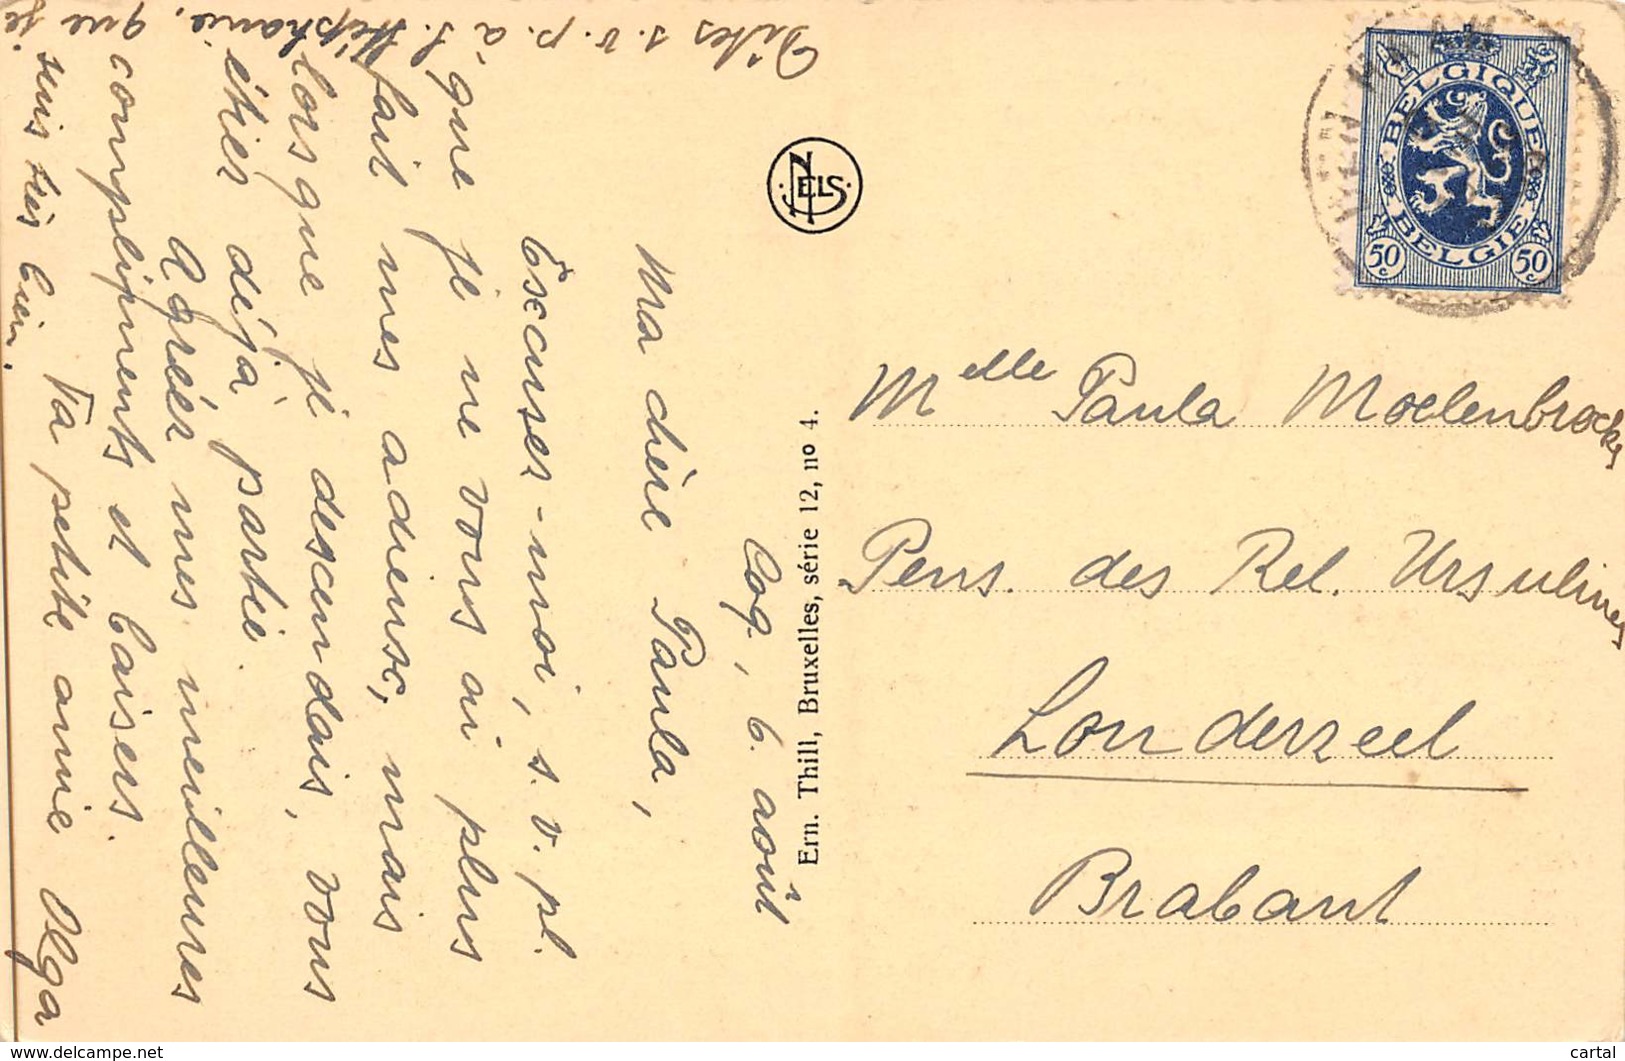 Coq, 6. août
Ma chère Paula,
Excuser-moi, s. v. pl.
que je ne vous ai plus
fait mes adieusc, mais
lorsque je descendais, vous
étier déjà partie.
Agréér mes meilleures
compliments et baisers.
Ta petite amie Olga
Dites s. v. p. à S. Stéphanie, que je
suis très bien.
NELS
Ern. Thill, Bruxelles, série 12, no 4.
BELGIQUE
BELGIE
50 c
50 c
DEN HAAN
Melle Paula Moelenbrockx
Pens. des Rel. Ursulines
Londerzeel
Brabant
www.delcampe.net
cartal